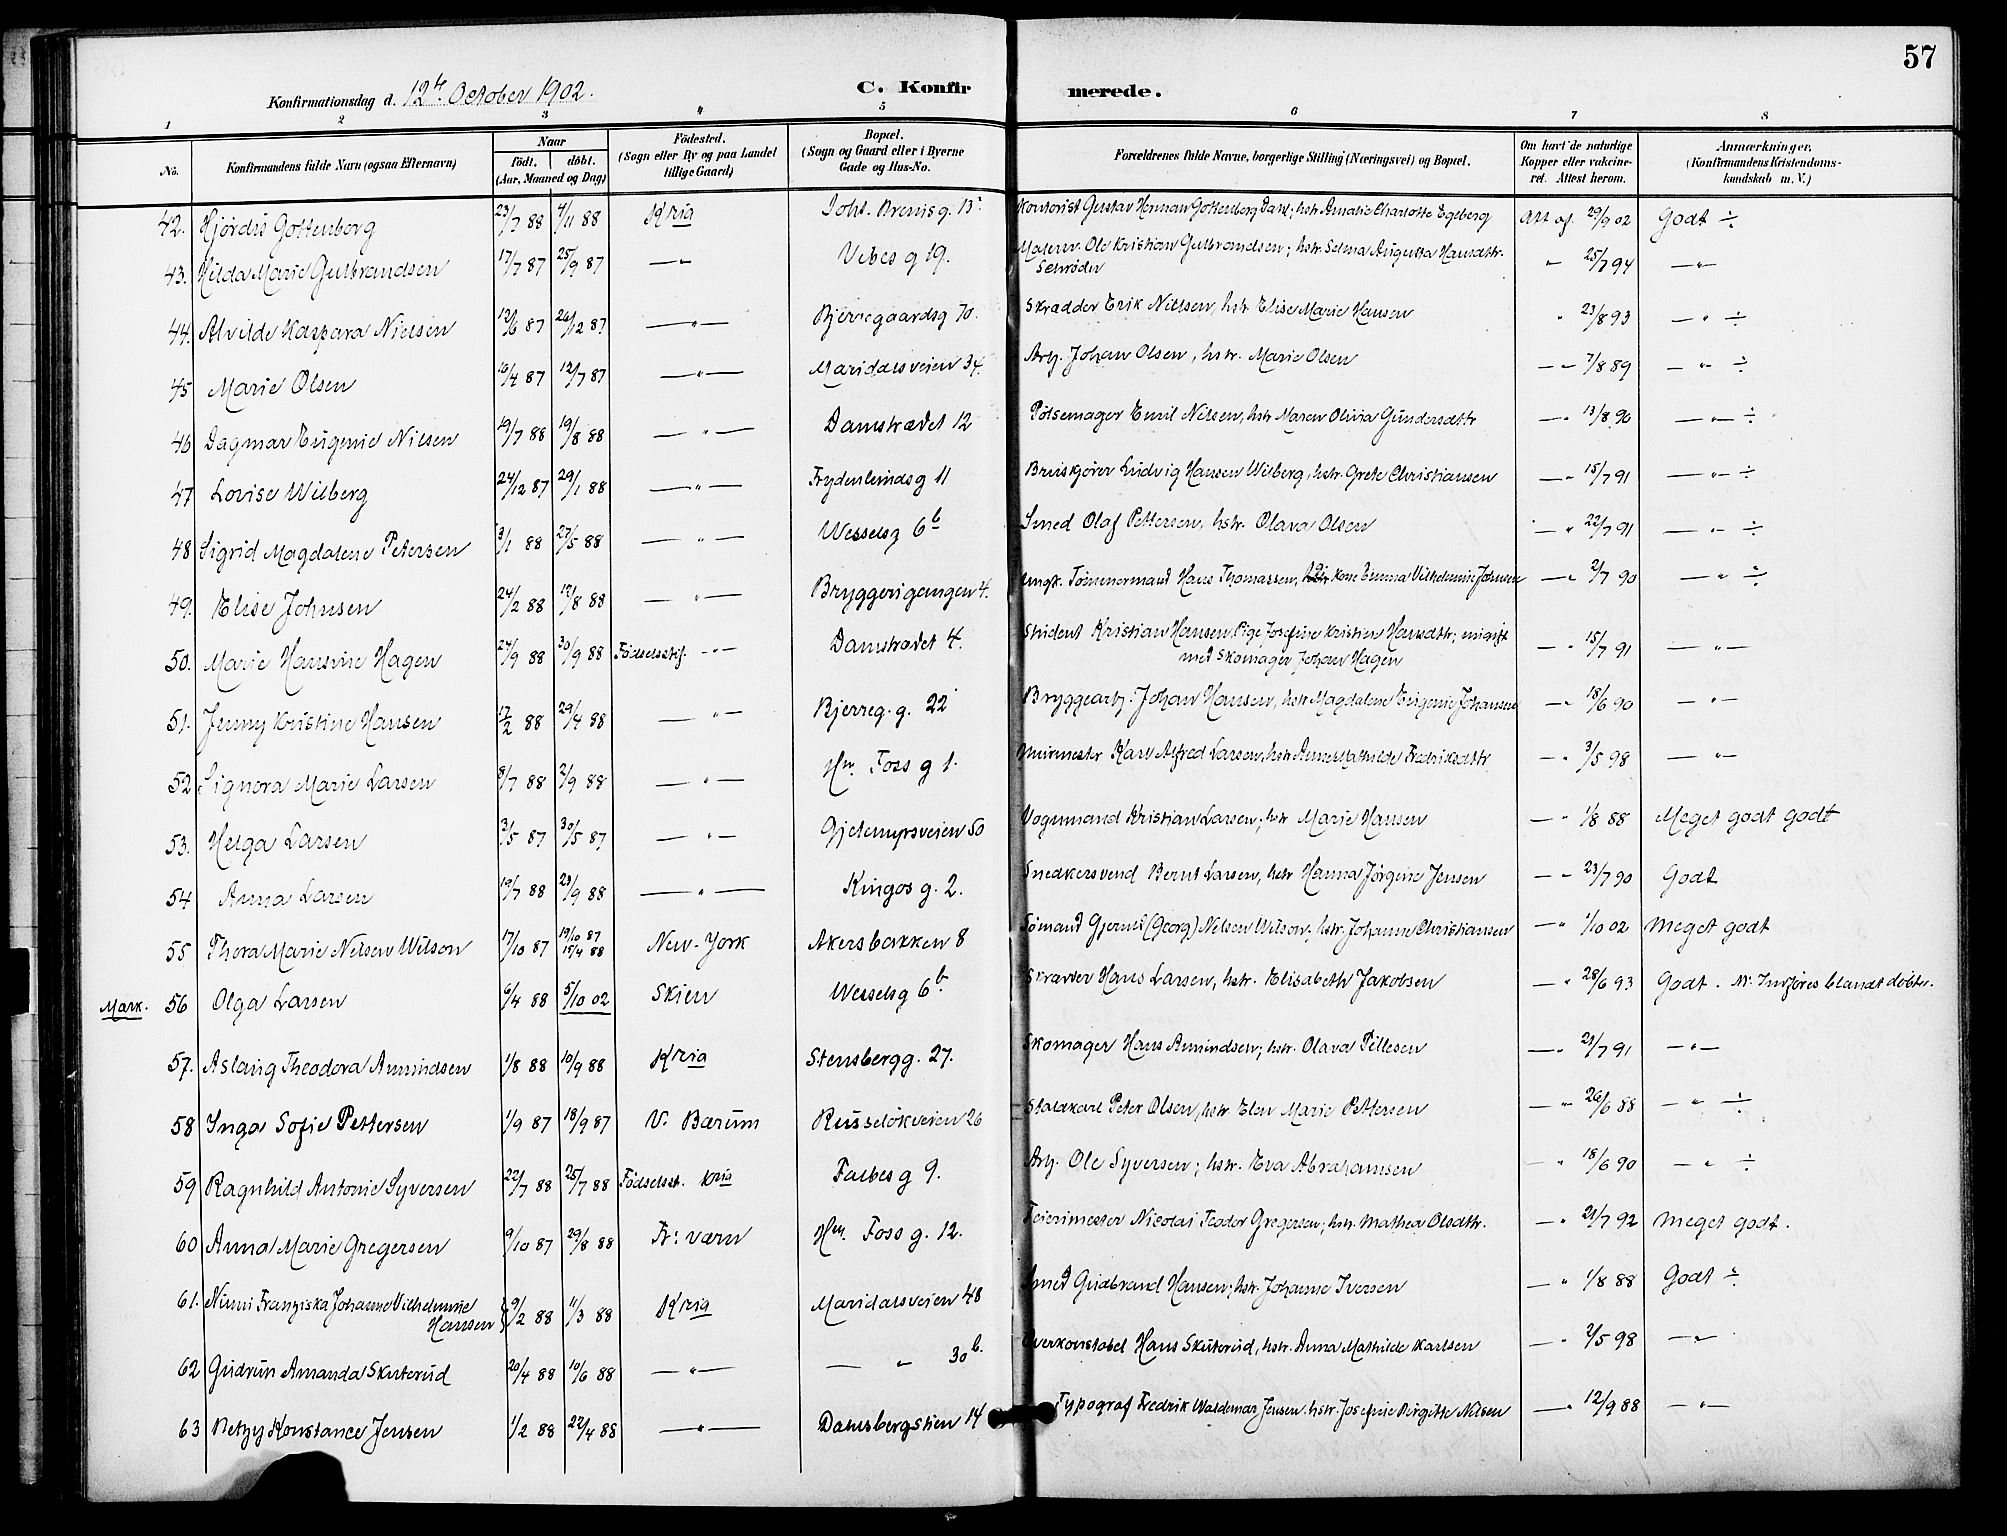 57
Konfirmationsdag d. 12te October 1902. C. Konfirmerede.
1 2 3 4 5 6 7 8
No. | Konfirmandens fulde Navn (ogsaa Efternavn) | Naar født. døbt. (Aar, Maaned og Dag) | Fødested. (Sogn eller By og paa Landet tillige Gaard) | Bopæl. (Sogn og Gaard eller i Byerne Gade og Hus-No. | Forældrenes fulde Navne, borgerlige Stilling (Næringsvei) og Bopæl. | Om havt de naturlige Kopper eller vakcineret. Attest herom. | Anmærkninger, (Konfirmandens Kristendomskundskab m. V.)
42. Hjördis Gottenborg 23/7 88 4/11 88 Kria Joht. Bruns g. 13 Kontorist Gustav Herman Gottenborg Dahl; hstr. Amalie Charlotte Egeberg Att af 29/9 02 Godt ÷
43. Hilda Marie Gulbrandsen 17/7 87 25/9 87 —"— Vibes g 19. Malerm. Ole Kristian Gulbrandsen; hstr. Selma Augusta Hansdtr. Schrøder " 25/7 94 —"—
44. Alvilde Kaspara Nielsen 12/6 87 26/12 87 —"— Bjerregaardsg 70. Skrædder Erik Nielsen, hstr. Elise Marie Hansen " 23/8 93 —"— ÷
45 Marie Olsen 16/4 87 12/7 87 —"— Maridalsveien 34. Arb. Johan Olsen, hstr. Marie Olsen —"— 7/8 89 —"— ÷
46 Dagmar Eugenie Nilsen 19/7 88 19/8 88 —"— Damstrædet 12 Pølsemager Emil Nilsen, hstr Maren Olivia Gundersdtr —" 13/8 90 —"— ÷
47 Lovise Wilberg 24/12 87 29/1 88 —"— Frydenlundsg 11 Bruiskjører Ludvig Hansen Wilberg, hstr. Grete Christiansen —" 15/7 91 —"— ÷
48 Sigrid Magdalene Petersen 3/1 88 27/5 88 —"— Wesselsg 6b Smed Olaf Pettersen, hstr. Olava Olsen —" 22/7 91 —"— ÷
49. Elise Johnsen 24/2 88 12/8 88 —"— Bryggerigangen 4. Ungk. Tømmermand Hans Thomassen, Kone Emma Vilhelmine Johnsen —" 2/7 90 —"— ÷
50. Marie Hansine Hagen 24/9 88 30/9 88 Födselsstif. —"— Damstrædet 4. Student Kristian Hansen. Pige Josefine Kristine Hansdtr; nu gift med Skomager Johan Hagen —" 15/7 91 —"—
51. Jenny Kristine Hansen 17/2 88 29/4 88 —"— Bjerreg. g. 22 Bryggearb. Johan Hansen, hstr Magdalene Eugenie Johansen —" 18/6 90 —"—
52 Signora Marie Larsen 8/7 88 2/9 88 —"— Hm. Foss g 1. Murmester Karl Alfred Larsen, hstr Anne Mathilde Fredriksdtr —" 3/5 98 —"—
53. Helga Larsen 3/5 87 30/5 87 —"— Gjetemyrsveien 50 Vognmand Kristian Larsen; hstr Marie Hansen —" 1/8 88 Meget godt godt
54 Anna Larsen 19/7 88 23/9 88 —"— Kingos g. 2. Snedkersvend Bernt Larsen, hstr Hanna Jørgine Jensen —" 23/7 90 Godt
55 Thora Marie Nelsen Wilson 17/10 87 19/10 87 15/4 88 New-York Akersbakken 8 Sømand Gjerned (Georg) Nelsen Wilson; hstr. Johanne Christiansen —" 1/10 02 Meget godt
Mærk. 56 Olga Larsen 6/4 88 5/10 02 Skien Wesselsg 6b. Skræder Hans Larsen, hstr. Elisabeth Jakobsen —" 28/6 93 Godt. Indføres blandt døbte.
57. Aslaug Theodora Amundsen 1/8 88 10/9 88 Kria Stensbergg. 27. Skomager Hans Amundsen; hstr. Olava Pellesen —" 21/7 91 —"—
58 Inga Sofie Pettersen 1/9 87 18/9 87 V. Bærum Ruseløkveien 26 Staldkarl Peter Olsen, hstr. Elen Marie Pettersen —" 26/6 88 —"— ÷
59 Ragnhild Antonie Syversen 22/7 88 25/7 88 Födselsst. Kria Falbes g 9. Arb. Ole Syversen; hstr. Eva Abrahamsen —" 18/6 90 —"— ÷
60 Anna Marie Gregersen 9/10 87 29/8 88 Fr: værn Hm. Foss g. 12. Feiermester Nicolai Teodor Gregersen; hstr. Mathea Olsdtr. —" 21/7 92 Meget godt.
61. Ninni Franziska Johanne Vilhelmine Hansen 9/2 88 11/3 88 Kria Maridalsveien 48 Smed Gudbrand Hansen; hstr. Johanne Iversen —" 1/8 88 Godt ÷
62 Gudrun Amanda Skuterud 20/4 88 10/6 88 —"— —"— 30b. Overkonstabel Hans Skuterud, hstr. Anna Mathilde Karlsen —" 2/5 98 —"—
63 Betzy Konstance Jensen 1/2 88 22/4 88 —"— Damsbergstien 14 Typograf Fredrik Waldemar Jensen. hstr. Josefine Birgitte Nilsen —" 12/9 88 —"—